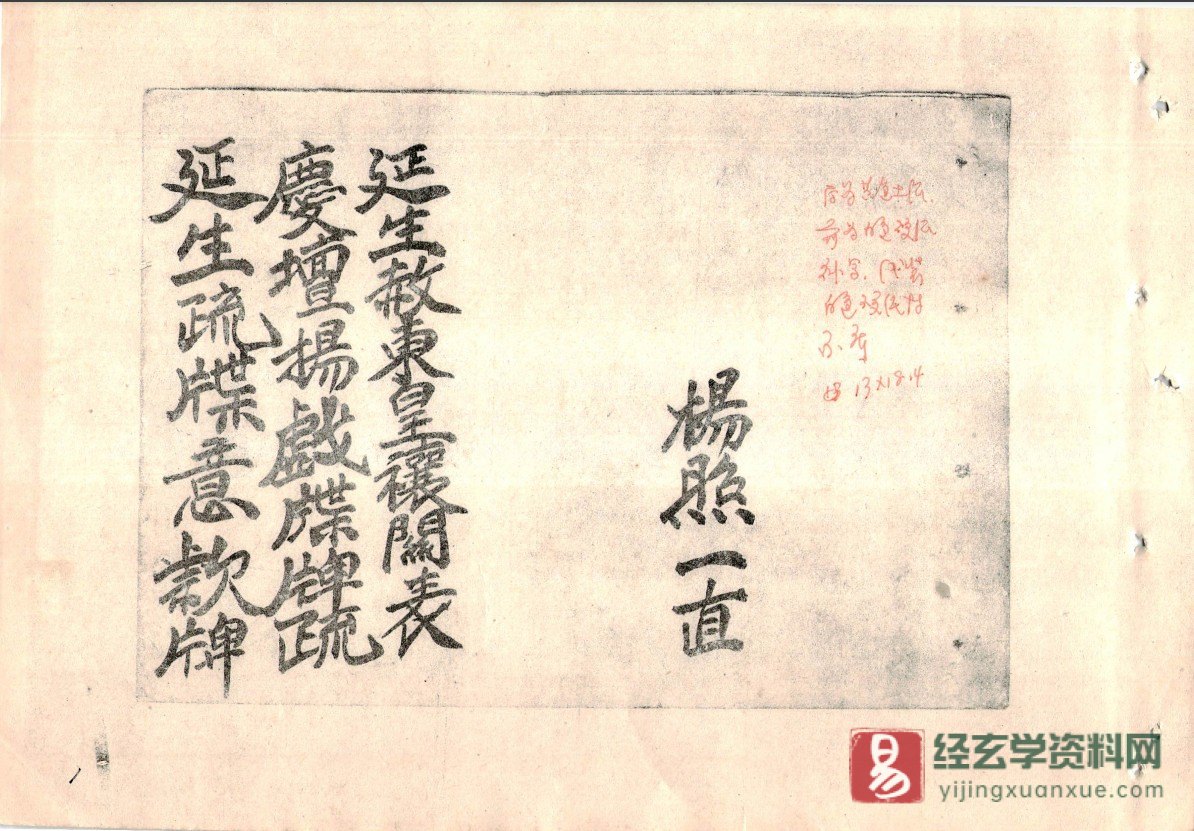 楊照一直
延生赦東皇禳関表
慶壇揚戲牒牌疏
延生疏牒意款牌
13×18.4
易
经玄学资料网
yijingxuanxue.com